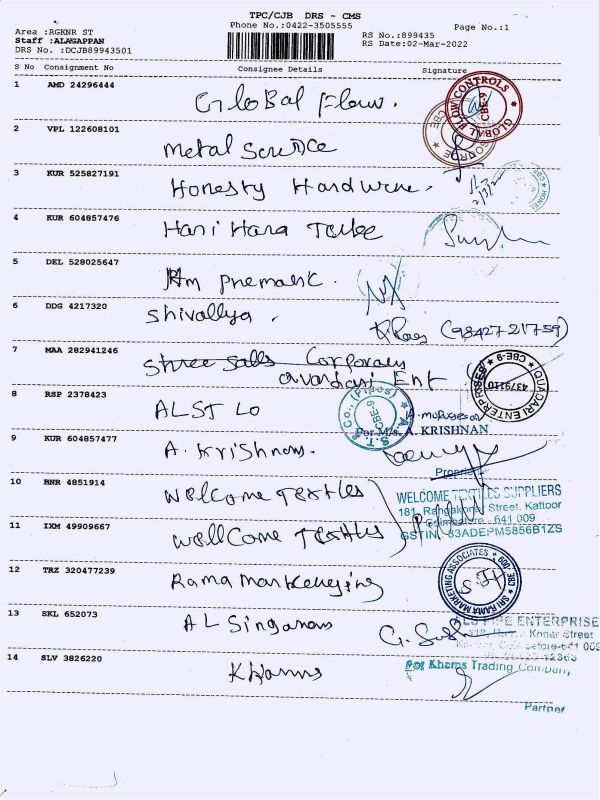 TPC/CJB DRS - CMS
Phone No.:0422-3505555
Page No.:1
Area :RGKNR ST
Staff :ALAGAPPAN
DRS No. :DCJB89943501
RS No.:899435
RS Date:02-Mar-2022
S No Consignment No Consignee Details Signature
1 AMD 24296444 Global Flow.
GLOBAL FLOW CONTROLS CBE-9
2 VPL 122608101 Metal Source
3 KUR 525827191 Honesty Hardwere.
4 KUR 604857476 Hari Hara
5 DEL 528025647
6 DDG 4217320 Shivallya.
(98427-21759)
7 MAA 282941246
Ent
QUADARI ENTERPRISES CBE-9
4379110
8 RSP 2378423 ALST Lo
S.T. & Co., (Pipes) CBE-9
A. murugesan
For M/s. A. KRISHNAN
9 KUR 604857477 A. Krishnan.
Proprietor
10 BNR 4851914 Welcome Textles
WELCOME TEXTILES SUPPLIERS
181, Rangakonar Street, Kattoor
Coimbatore - 641 009
GSTIN: 33ADEPM5856B1ZS
11 IXM 49909667 Wellcome Textles
12 TRZ 320477239 Rama
SRI RAMA MARKETING ASSOCIATES CBE-009
13 SKL 652073 AL Singaram
PIPE ENTERPRISE
Konar Street
14 SLV 3826220 Khams
For Khems Trading Company
Partner